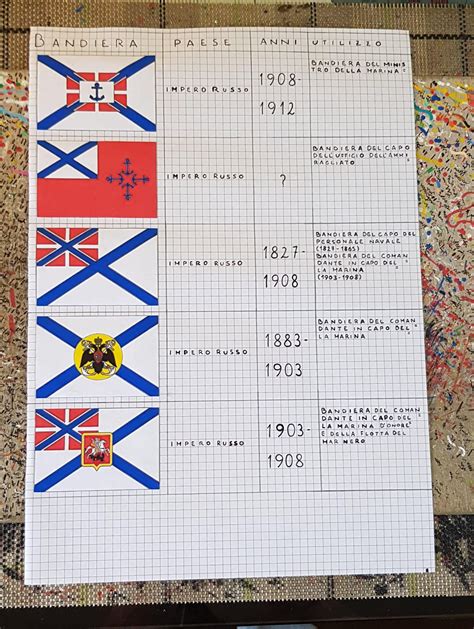 BANDIERA PAESE ANNI UTILIZZO
IMPERO RUSSO
1908-
1912
BANDIERA DEL MINIS
TRO DELLA MARINA"
IMPERO RUSSO
?
BANDIERA DEL CAPO
DELL'UFFICIO DELL'AMMI
RAGLIATO
IMPERO RUSSO
1827-
1908
BANDIERA DEL CAPO DEL
PERSONALE NAVALE
(1827-1865)
BANDIERA DEL COMAN
DANTE IN CAPO DEL"
LA MARINA "
(1903-1908)
IMPERO RUSSO
1883-
1903
BANDIERA DEL COMAN
DANTE IN CAPO DEL"
LA MARINA "
IMPERO RUSSO
1903-
1908
BANDIERA DEL COMAN
DANTE IN CAPO DEL"
LA MARINA D'ONORE"
E DELLA FLOTTA DEL
MAR NERO